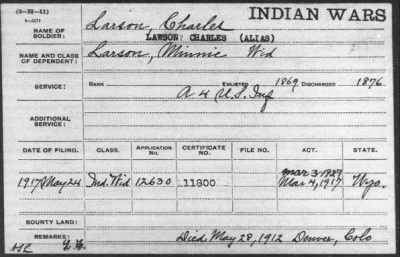 (3-28-11)
INDIAN WARS
NAME OF SOLDIER: Larson, Charles
LAWSON, CHARLES (ALIAS)
NAME AND CLASS OF DEPENDENT: Larson, Minnie Wid
SERVICE: RANK ENLISTED 1869 DISCHARGED 1876
A 4 U.S. Inf
ADDITIONAL SERVICE:
DATE OF FILING. CLASS. APPLICATION No. CERTIFICATE No. FILE No. ACT. STATE.
mar 3-1927
1917 May 24 Ind. Wid 12630 11800 Mar 4, 1917 Wyo.
BOUNTY LAND:
REMARKS: Died May 28, 1912 Denver, Colo